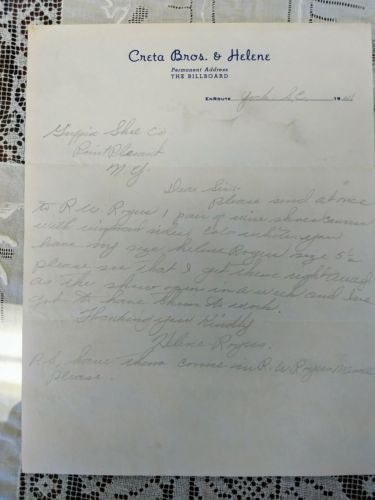 Creta Bros. & Helene
Permanent Address
THE BILLBOARD
ENROUTE York S.C. 19
Shoe Co
Point Pleasant
N.Y.
Dear Sir:-
please send at once
to R.W. Rogers 1 pair of wire shoes
with
have my size Helene Rogers size 5½
please see that I get these right away
as the show opens in a week and I've
got to have them to work.
Thanking you kindly
Helene Rogers.
P.S. have them come in R.W Rogers name
please.